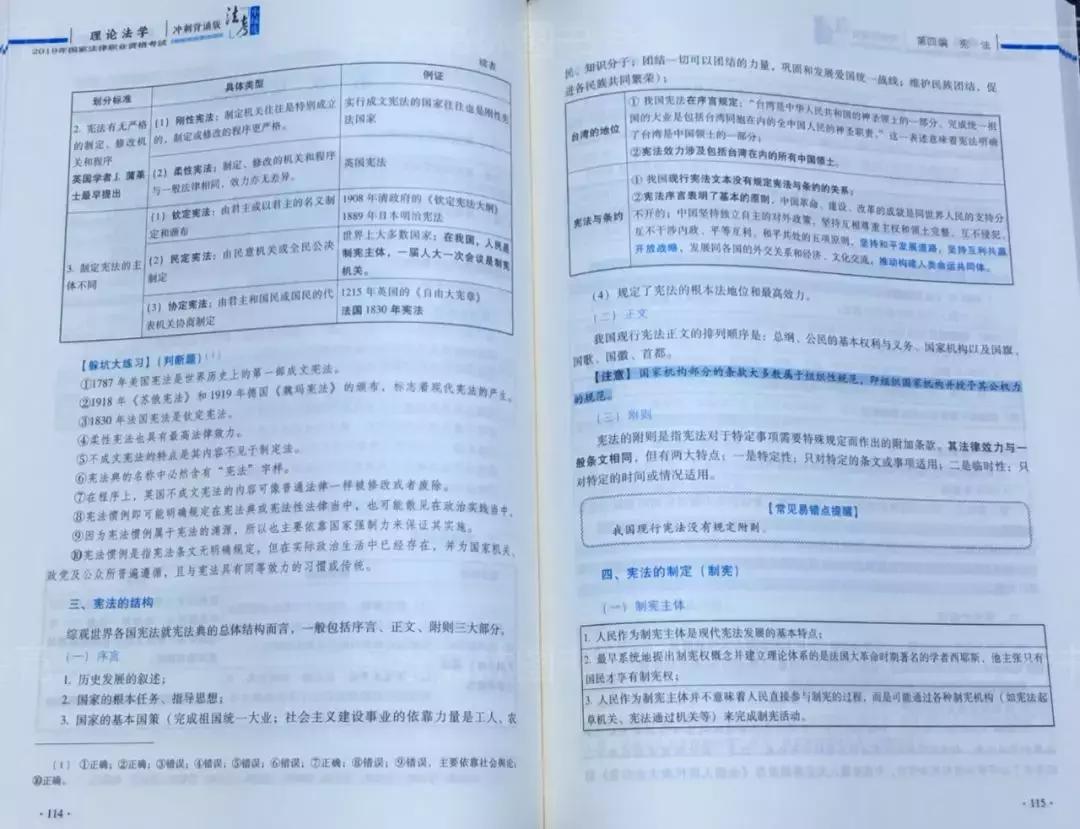 理论法学
冲刺背诵版
法考
2019年国家法律职业资格考试
续表
划分标准
具体类型
例证
2. 宪法有无严格
的制定、修改机
关和程序
英国学者J. 蒲莱
士最早提出
(1) 刚性宪法：制定机关往往是特别成立
的，制定或修改的程序更严格。
实行成文宪法的国家往往也是刚性宪
法国家
(2) 柔性宪法：制定、修改的机关和程序
与一般法律相同，效力亦无差异。
英国宪法
3. 制定宪法的主
体不同
(1) 钦定宪法：由君主或以君主的名义制
定和颁布
1908 年清政府的《钦定宪法大纲》
1889 年日本明治宪法
(2) 民定宪法：由民意机关或全民公决
制定
世界上大多数国家；在我国，人民是
制宪主体，一届人大一次会议是制宪
机关。
(3) 协定宪法：由君主和国民或国民的代
表机关协商制定
1215 年英国的《自由大宪章》
法国 1830 年宪法
【躲坑大练习】(判断题)〔1〕
①1787 年美国宪法是世界历史上的第一部成文宪法。
②1918 年《苏俄宪法》和 1919 年德国《魏玛宪法》的颁布，标志着现代宪法的产生。
③1830 年法国宪法是钦定宪法。
④柔性宪法也具有最高法律效力。
⑤不成文宪法的特点是其内容不见于制定法。
⑥宪法典的名称中必然含有“宪法”字样。
⑦在程序上，英国不成文宪法的内容可像普通法律一样被修改或者废除。
⑧宪法惯例即可能明确规定在宪法典或宪法性法律当中，也可能散见在政治实践当中。
⑨因为宪法惯例属于宪法的渊源，所以也主要依靠国家强制力来保证其实施。
⑩宪法惯例是指宪法条文无明确规定，但在实际政治生活中已经存在，并为国家机关、
政党及公众所普遍遵循，且与宪法具有同等效力的习惯或传统。
三、宪法的结构
综观世界各国宪法就宪法典的总体结构而言，一般包括序言、正文、附则三大部分。
(一) 序言
1. 历史发展的叙述；
2. 国家的根本任务、指导思想；
3. 国家的基本国策（完成祖国统一大业；社会主义建设事业的依靠力量是工人、农
〔1〕 ①正确；②正确；③错误；④错误；⑤错误；⑥错误；⑦正确；⑧错误；⑨错误，主要依靠社会舆论；
⑩正确。
· 114 ·
第四编 宪 法
民、知识分子；团结一切可以团结的力量，巩固和发展爱国统一战线；维护民族团结，促
进各民族共同繁荣）；
台湾的地位
① 我国宪法在序言规定：“台湾是中华人民共和国的神圣领土的一部分。完成统一祖
国的大业是包括台湾同胞在内的全中国人民的神圣职责。”这一表述意味着宪法明确
了台湾是中国领土的一部分；
②宪法效力涉及包括台湾在内的所有中国领土。
宪法与条约
① 我国现行宪法文本没有规定宪法与条约的关系；
②宪法序言表明了基本的原则，中国革命、建设、改革的成就是同世界人民的支持分
不开的；中国坚持独立自主的对外政策，坚持互相尊重主权和领土完整、互不侵犯、
互不干涉内政、平等互利、和平共处的五项原则，坚持和平发展道路，坚持互利共赢
开放战略，发展同各国的外交关系和经济、文化交流，推动构建人类命运共同体。
(4) 规定了宪法的根本法地位和最高效力。
(二) 正文
我国现行宪法正文的排列顺序是：总纲、公民的基本权利与义务、国家机构以及国旗、
国歌、国徽、首都。
【注意】国家机构部分的条款大多数属于组织性规范，即组织国家机构并授予其公权力
的规范。
(三) 附则
宪法的附则是指宪法对于特定事项需要特殊规定而作出的附加条款。其法律效力与一
般条文相同，但有两大特点：一是特定性；只对特定的条文或事项适用；二是临时性；只
对特定的时间或情况适用。
【常见易错点提醒】
我国现行宪法没有规定附则。
四、宪法的制定（制宪）
(一) 制宪主体
1. 人民作为制宪主体是现代宪法发展的基本特点；
2. 最早系统地提出制宪权概念并建立理论体系的是法国大革命时期著名的学者西耶斯，他主张只有
国民才享有制宪权；
3. 人民作为制宪主体并不意味着人民直接参与制宪的过程，而是可能通过各种制宪机构（如宪法起
草机关、宪法通过机关等）来完成制宪活动。
· 115 ·